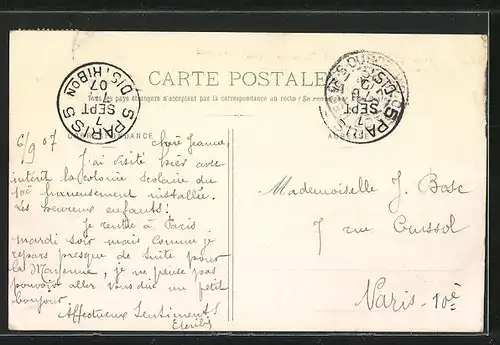 CARTE POSTALE
Tous les pays étrangers n'acceptent pas la correspondance au recto (Se rense
CORRESPONDANCE
5 PARIS 5
DISTRIBON
7
SEPT
07
5 PARIS
7
SEPT
6/9 07
Chère Jeanne,
J'ai visité hier avec
intérêt la colonie scolaire du
10è luxueusement installée.
Les heureux enfants!
Je rentre à Paris
mardi soir mais comme je
repars presque de suite pour
la Mayenne, je ne pense pas
pouvoir aller vous dire un petit
bonjour.
Affectueux Sentiments
Mademoiselle J. Bosc
7 rue Cuissol
Paris-10è